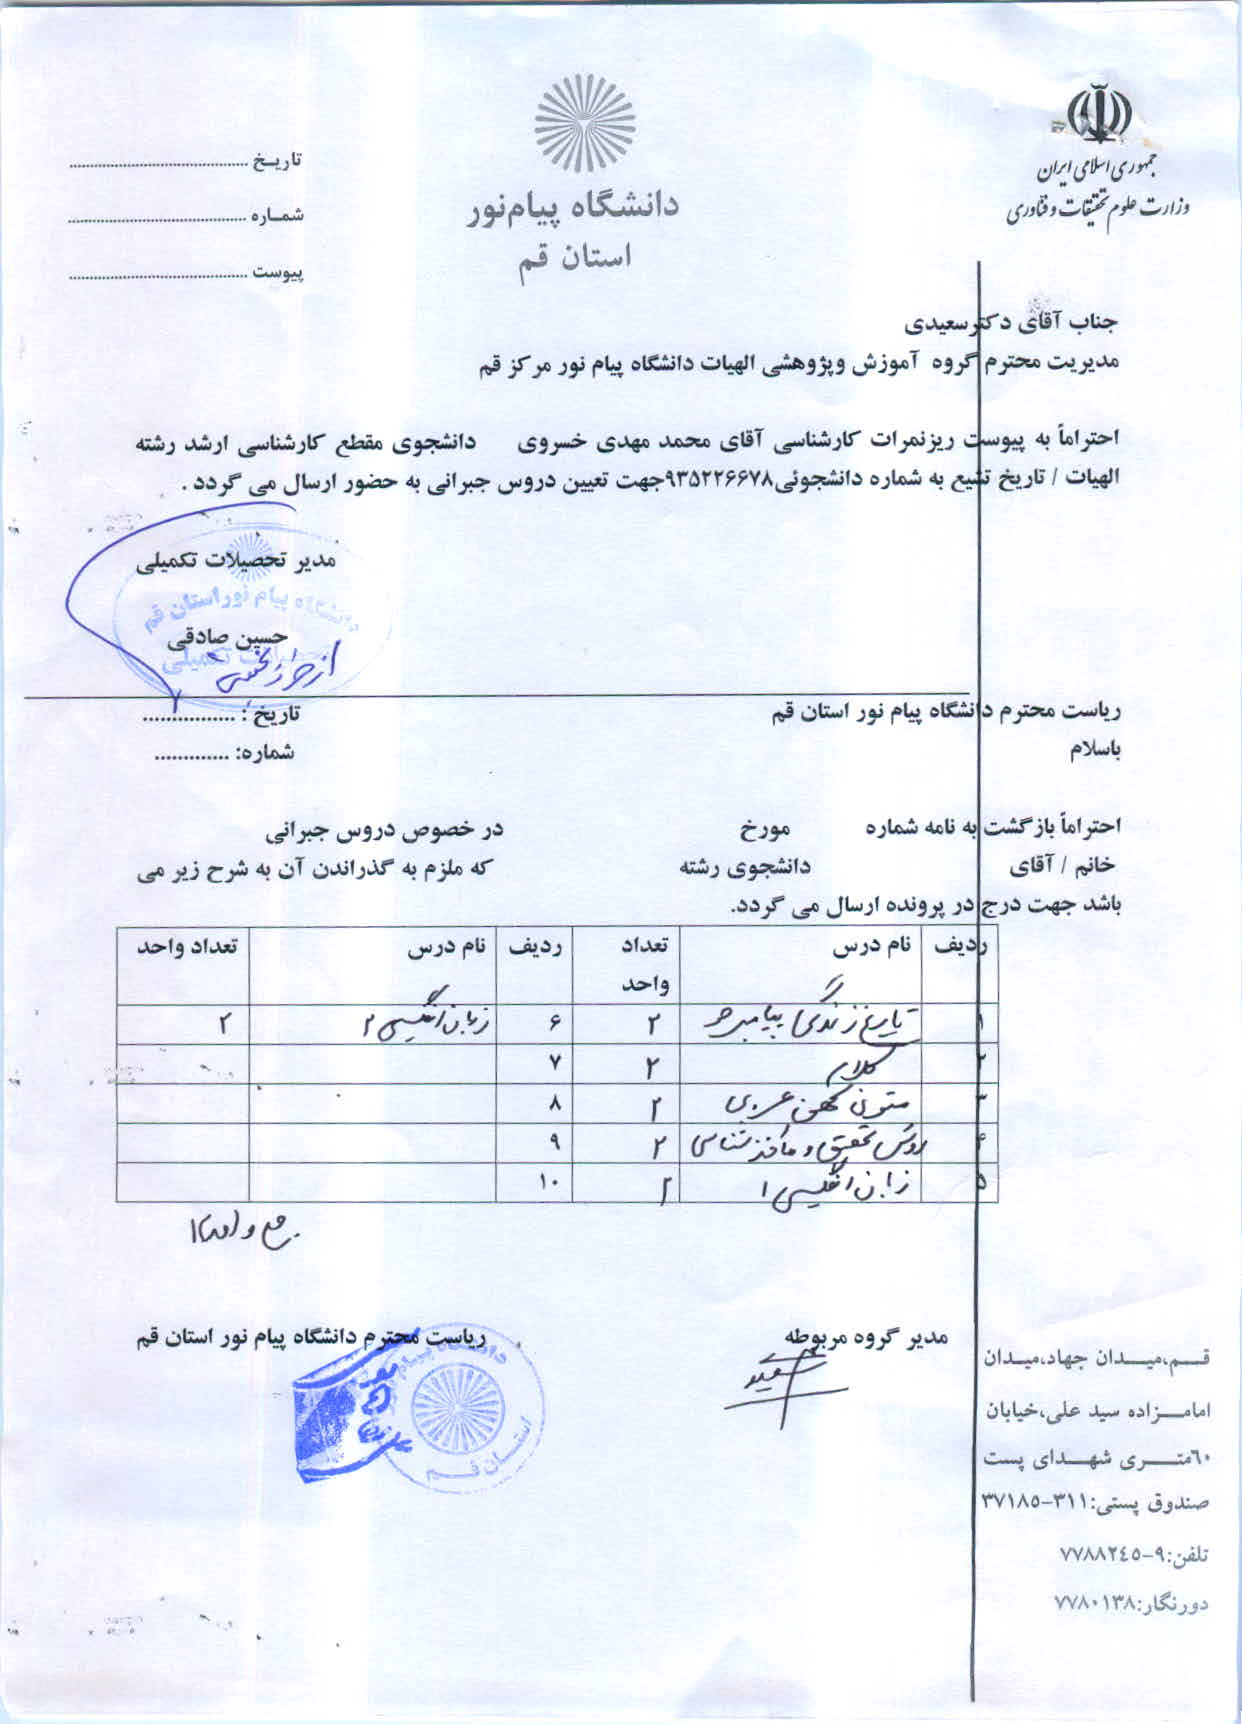 جمهوری اسلامی ایران
وزارت علوم تحقیقات و فناوری
دانشگاه پیام‌نور
استان قم
تاریخ ............................................
شماره ............................................
پیوست ............................................
جناب آقای دکترسعیدی
مدیریت محترم گروه آموزش وپژوهشی الهیات دانشگاه پیام نور مرکز قم
احتراماً به پیوست ریزنمرات کارشناسی آقای محمد مهدی خسروی دانشجوی مقطع کارشناسی ارشد رشته
الهیات / تاریخ تشیع به شماره دانشجوئی۹۳۵۲۲۶۶۷۸جهت تعیین دروس جبرانی به حضور ارسال می گردد .
مدیر تحصیلات تکمیلی
دانشگاه پیام نور استان قم
حسین صادقی
تحصیلات تکمیلی
از طرف
ریاست محترم دانشگاه پیام نور استان قم
تاریخ : ................
باسلام
شماره: .............
احتراماً بازگشت به نامه شماره مورخ در خصوص دروس جبرانی
خانم / آقای دانشجوی رشته که ملزم به گذراندن آن به شرح زیر می
باشد جهت درج در پرونده ارسال می گردد.
ردیف نام درس تعداد واحد ردیف نام درس تعداد واحد
۱ تاریخ زندگی پیامبر ۲ ۶ زبان انگلیسی ۲ ۲
۲ کلام ۲ ۷
۳ متون کهن عربی ۲ ۸
۴ روش تحقیق و ماخذ شناسی ۲ ۹
۵ زبان انگلیسی ۱ ۲ ۱۰
مدیر گروه مربوطه
ریاست محترم دانشگاه پیام نور استان قم
دانشگاه پیام نور
استان قم
قم،میدان جهاد،میدان
امامزاده سید علی،خیابان
۶۰متری شهدای پست
صندوق پستی:۳۱۱-۳۷۱۸۵
تلفن:۹-۷۷۸۸۲۴۵
دورنگار:۷۷۸۰۱۳۸